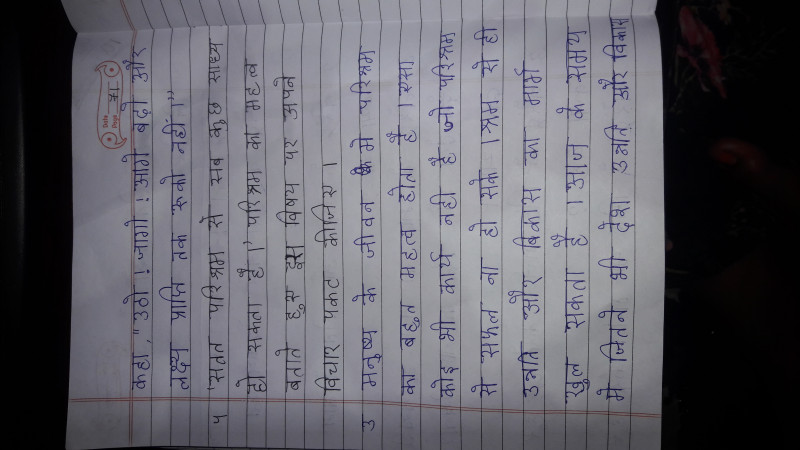 Date
Page 71
कहा, "उठो ! जागो ! आगे बढ़ो और
लक्ष्य प्राप्ति तक रुको नहीं ।"
५ 'सतत परिश्रम से सब कुछ साध्य
हो सकता है ।' परिश्रम का महत्व
बताते हुए इस विषय पर अपने
विचार पकट कीजिए ।
उ मनुष्य के जीवन मे परिश्रम
का बहुत महत्व होता है । एसा
कोइ भी कार्य नही है जो परिश्रम
से सफल ना हो सके । श्रम से ही
उन्नति और विकास का मार्ग
खुल सकता है । आज के समय
मे जितने भी देश उन्नति और विकास